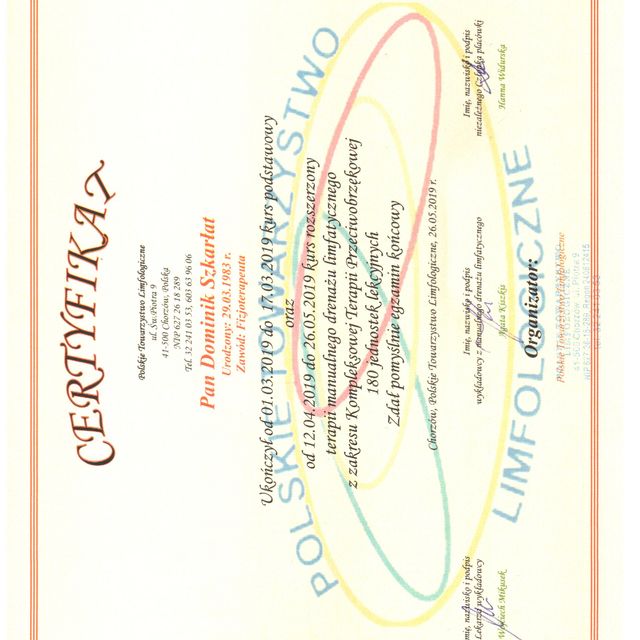 CERTYFIKAT
Polskie Towarzystwo Limfologiczne
ul. Św. Piotra 9
41-500 Chorzów, Polska
NIP 627 26 18 289
Tel. 32 241 03 53, 603 63 96 06
Pan Dominik Szkarłat
Urodzony: 29.03.1983 r.
Zawód: Fizjoterapeuta
Ukończył od 01.03.2019 do 17.03.2019 kurs podstawowy
oraz
od 12.04.2019 do 26.05.2019 kurs rozszerzony
terapii manualnego drenażu limfatycznego
z zakresu Kompleksowej Terapii Przeciwobrzękowej
180 jednostek lekcyjnych
Zdał pomyślnie egzamin końcowy
Chorzów, Polskie Towarzystwo Limfologiczne, 26.05.2019 r.
Imię, nazwisko i podpis
Lekarza wykładowcy
Wojciech Mikusek
Imię, nazwisko i podpis
wykładowcy z manualnego drenażu limfatycznego
Beata Kuczka
Imię, nazwisko i podpis
niezależnego Członka placówki
Hanna Widurska
Organizator:
Polskie Towarzystwo Limfologiczne
POLSKIE TOWARZYSTWO
LIMFOLOGICZNE